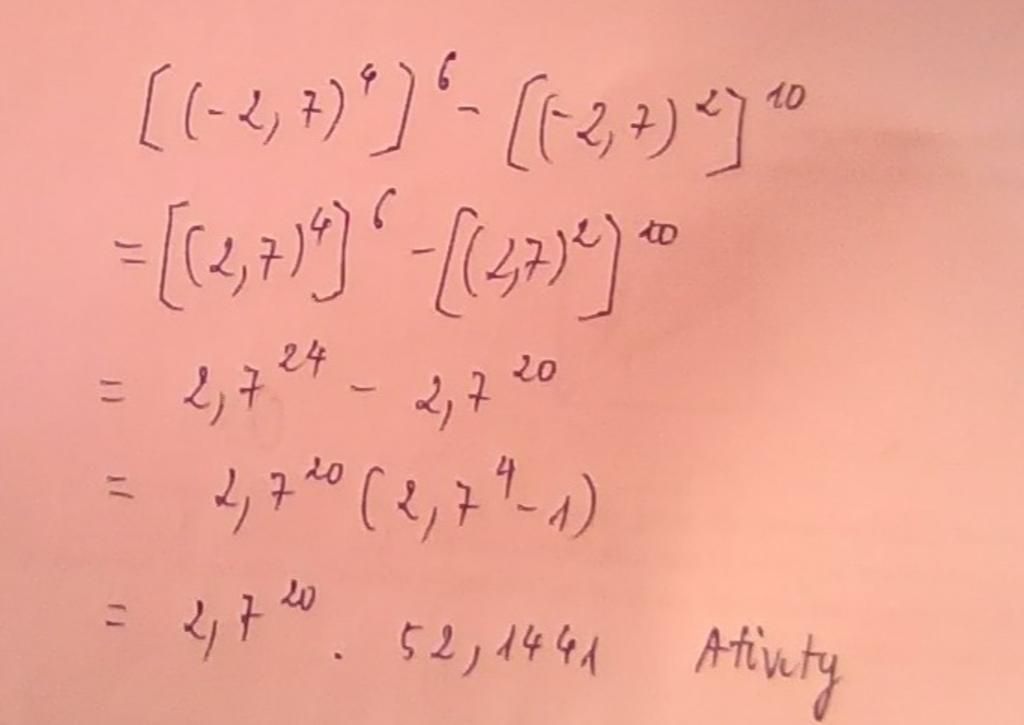 [(-2,7)⁴]⁶ - [(-2,7)²]¹⁰
= [(2,7)⁴]⁶ - [(2,7)²]¹⁰
= 2,7²⁴ - 2,7²⁰
= 2,7²⁰ (2,7⁴ - 1)
= 2,7²⁰ . 52,1441 Ativity